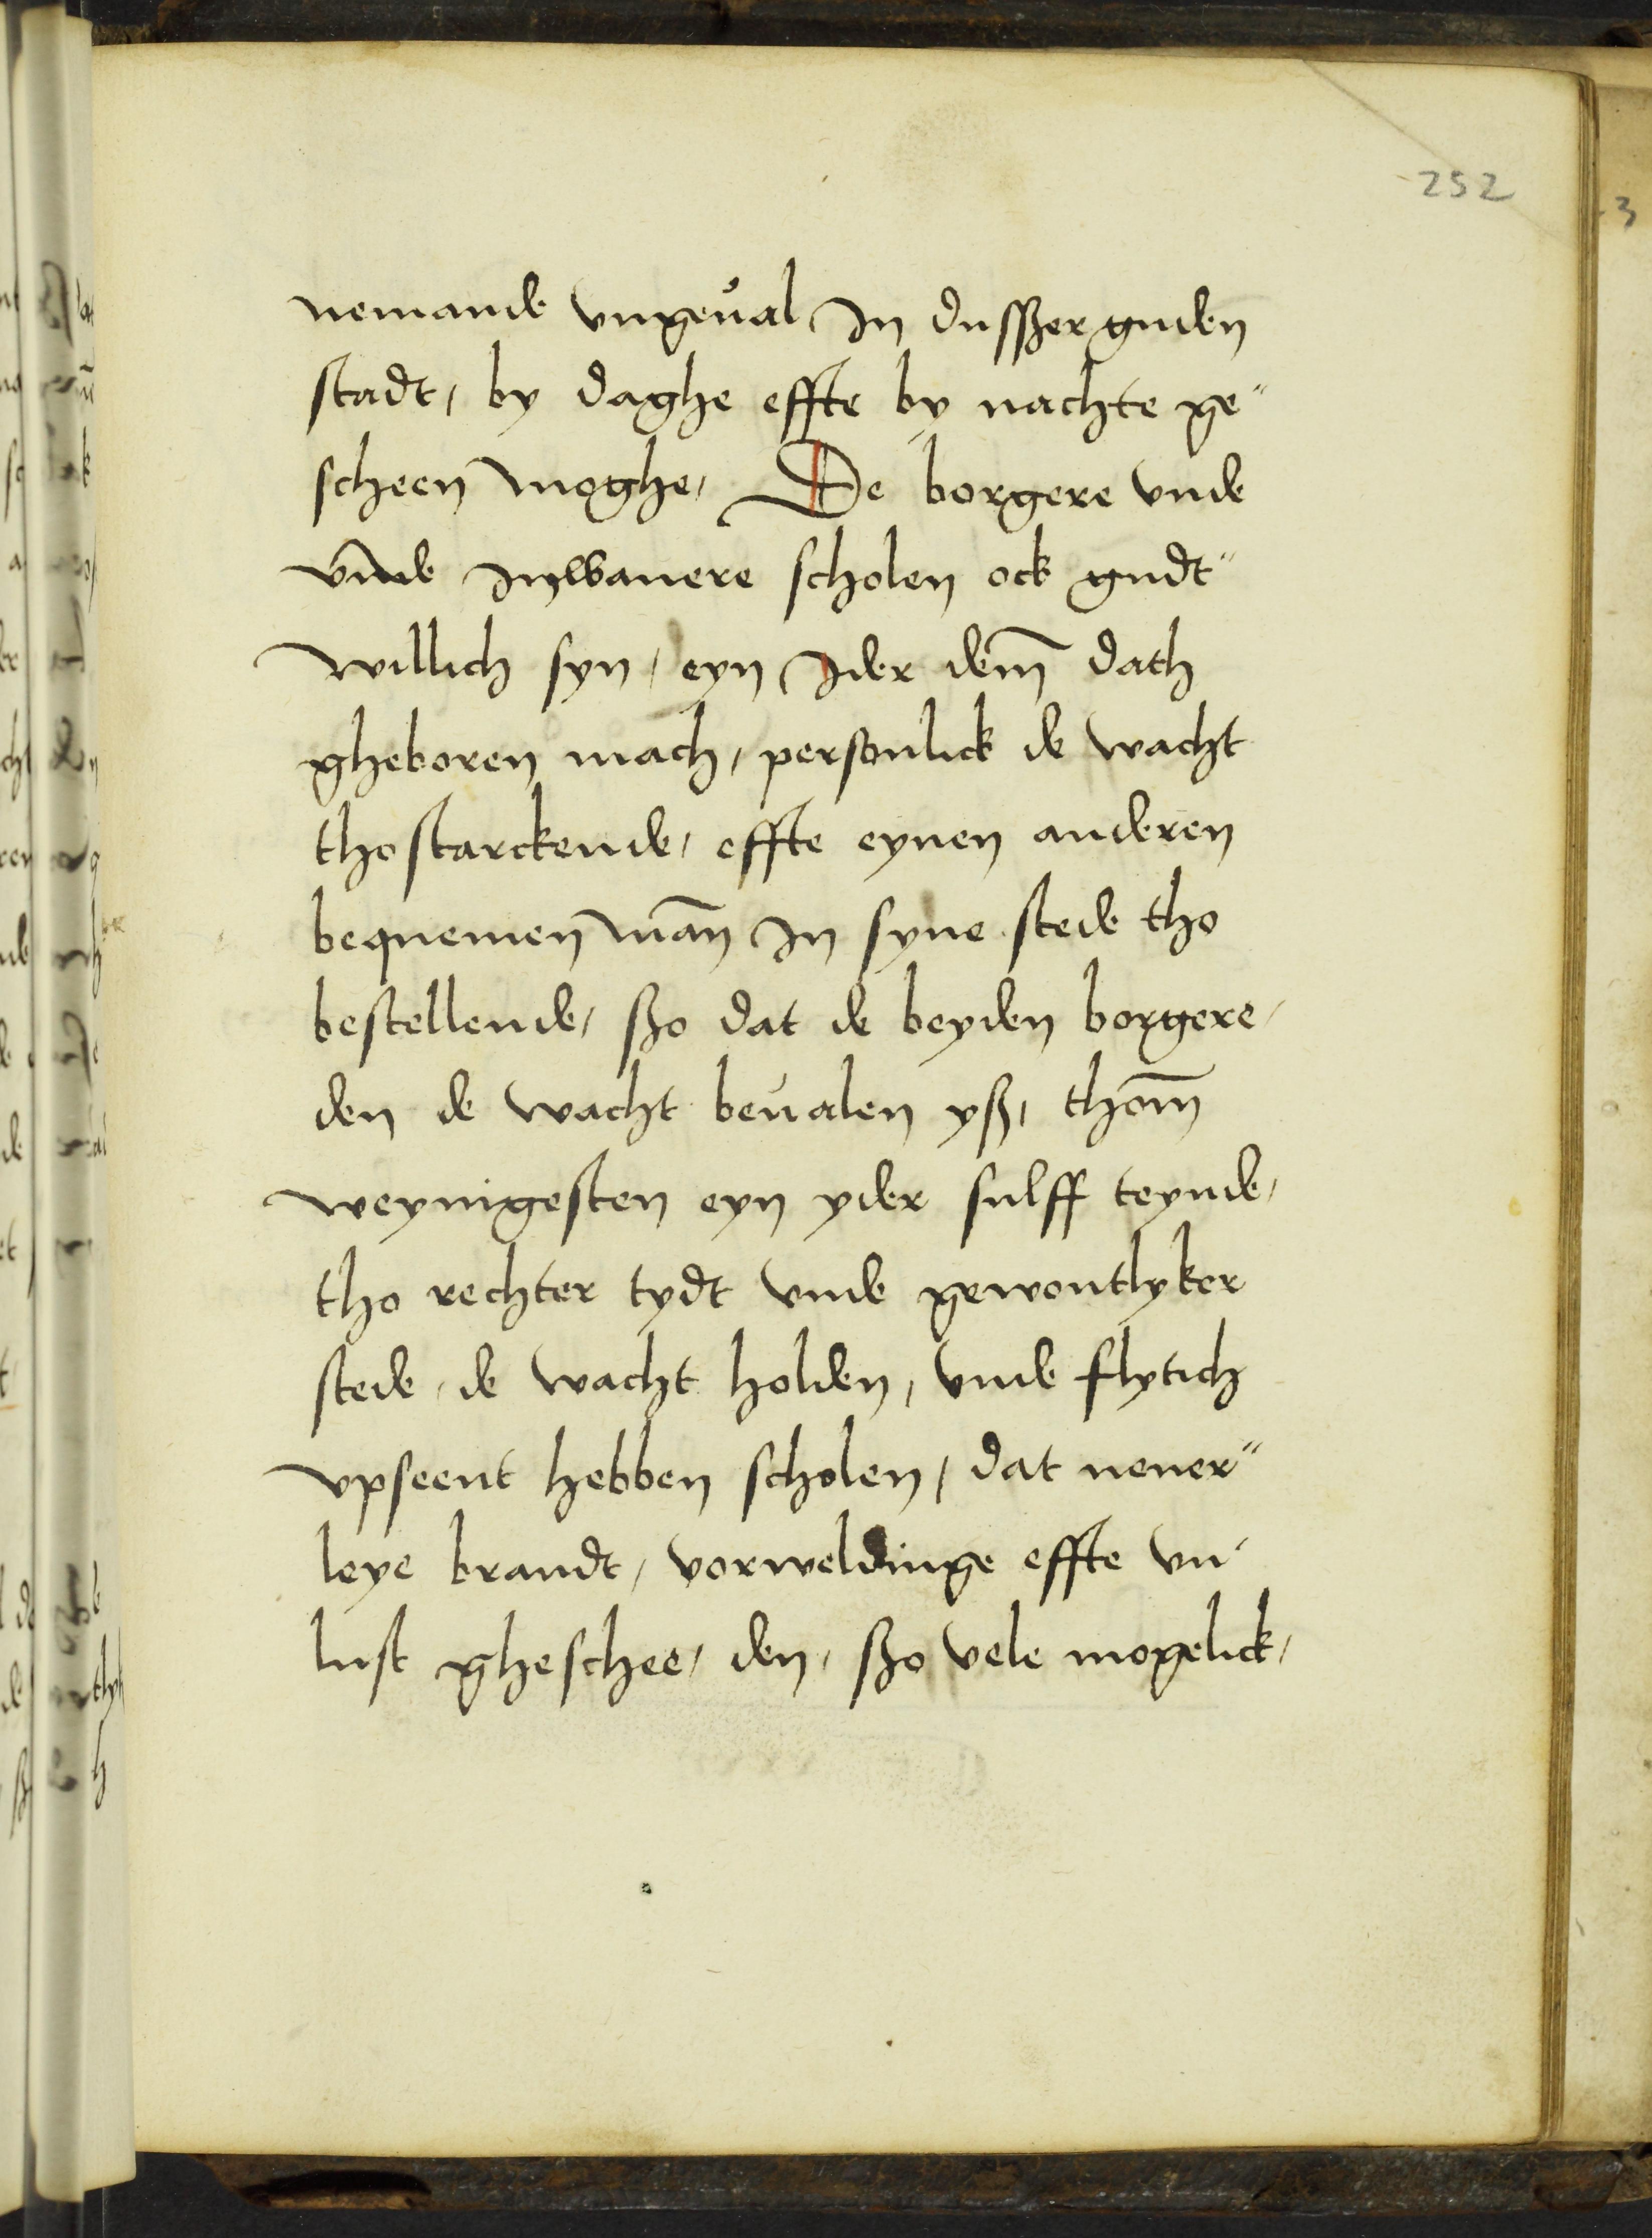 252
nemande vngeual In dusszer guden
stadt, by daghe effte by nachte ge"
scheen moghe, De borgere vnde
vnde Inwanere scholen ock gudt"
willich syn, eyn Ider dem̄ dath
gheboren mach, personlick de wacht
tho starckende, effte eynen anderen
bequemen man̄ In syne stede tho
bestellende, szo dat de beyden borgere,
den de wacht beualen ysz, thom̄
weynigesten eyn yder sulff teynde,
tho rechter tydt vnde gewontlyker
stede, de wacht holden, vnde flytich
vpseent hebben scholen, dat nener"
leye brandt, vorweldinge effte vn"
lust gheschee, den, szo vele mogelick,